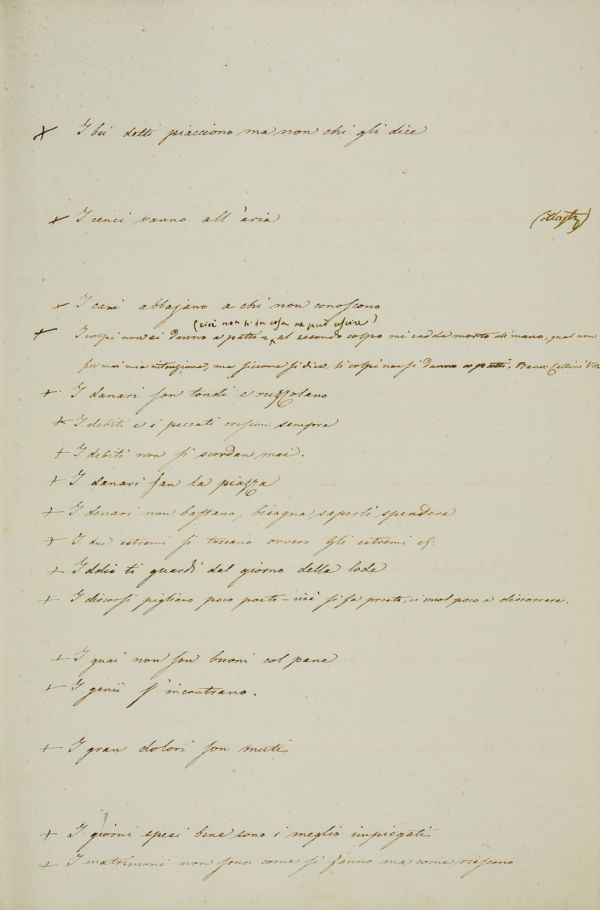 + I bei detti piacciono ma non chi gli dice
+ I cenci vanno all'aria
+ I cani abbajano a chi non conoscono
(cioè non si sa cosa ne può uscire)
+ I colpi non si danno a patti = al secondo colpo mi cadde morto di mano, qual non
fu mai mia intenzione, ma siccome si dice, li colpi non si danno a patti. Benv. Cellini Vita
+ I danari son tondi e ruzzolano
+ I debiti e i peccati crescon sempre
+ I debiti non si scordan mai.
+ I danari fan la piazza
+ I denari non bastano, bisogna saperli spendere
+ I due estremi si toccano ovvero Gli estremi
+ Iddio ti guardi dal giorno della lode
+ I discorsi pigliano poco posto - cioè si fa presto, ci vuol poco a discorrere.
+ I guai non son buoni col pane
+ I genii s'incontrano.
+ I gran dolori son muti
+ I giorni spesi bene sono i meglio impiegati
+ I matrimoni non sono come si fanno ma come riescono